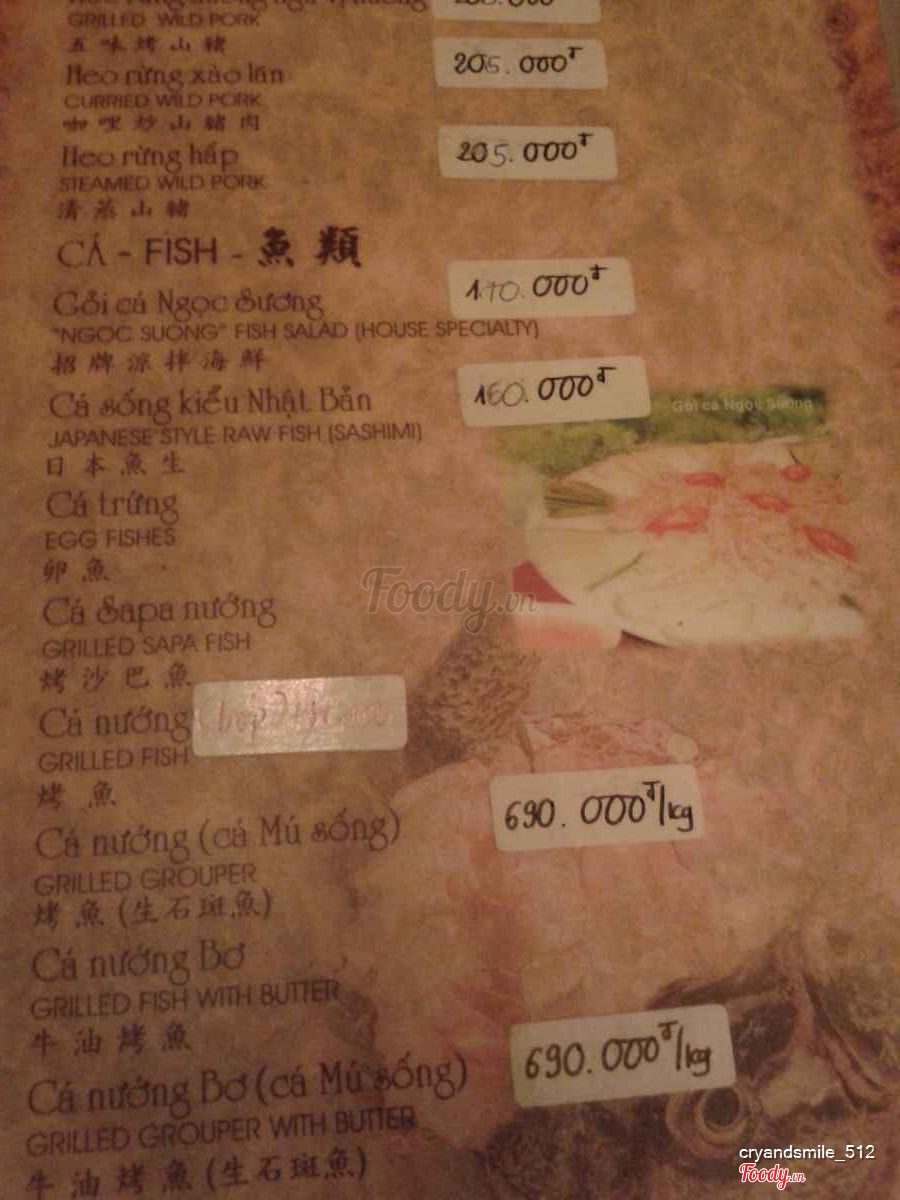 GRILLED WILD PORK
五味烤山豬
Heo rừng xào lăn
205.000đ
CURRIED WILD PORK
咖哩炒山豬肉
Heo rừng hấp
205.000đ
STEAMED WILD PORK
清蒸山豬
CÁ - FISH - 魚類
Gỏi cá Ngọc Sương
000đ
"NGOC SUONG" FISH SALAD (HOUSE SPECIALTY)
招牌涼拌海鮮
Cá sống kiểu Nhật Bản
160.000đ
JAPANESE STYLE RAW FISH (SASHIMI)
日本魚生
Gỏi cá Ngọc Sương
Cá trứng
EGG FISHES
卵魚
Cá Sapa nướng
GRILLED SAPA FISH
烤沙巴魚
Cá nướng
GRILLED FISH
烤魚
Cá nướng (cá Mú sống)
690.000đ/kg
GRILLED GROUPER
烤魚(生石斑魚)
Cá nướng Bơ
GRILLED FISH WITH BUTTER
牛油烤魚
Cá nướng Bơ (cá Mú sống)
690.000đ/kg
GRILLED GROUPER WITH BUTTER
牛油烤魚(生石斑魚)
Foody.vn
cryandsmile_512
Foody.vn